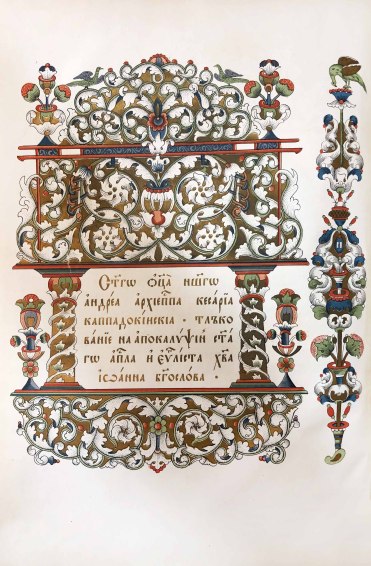 Ст҃гѡ ѻц҃а нш҃гѡ
андреа архіеп҃па кесаріа
каппадокїнскїа · тлъко
ванїе на апокалѷѱїй ст҃а
гѡ ап҃ла и єѵ҃лїста хв҃а
іѡанна бг҃ослова ·